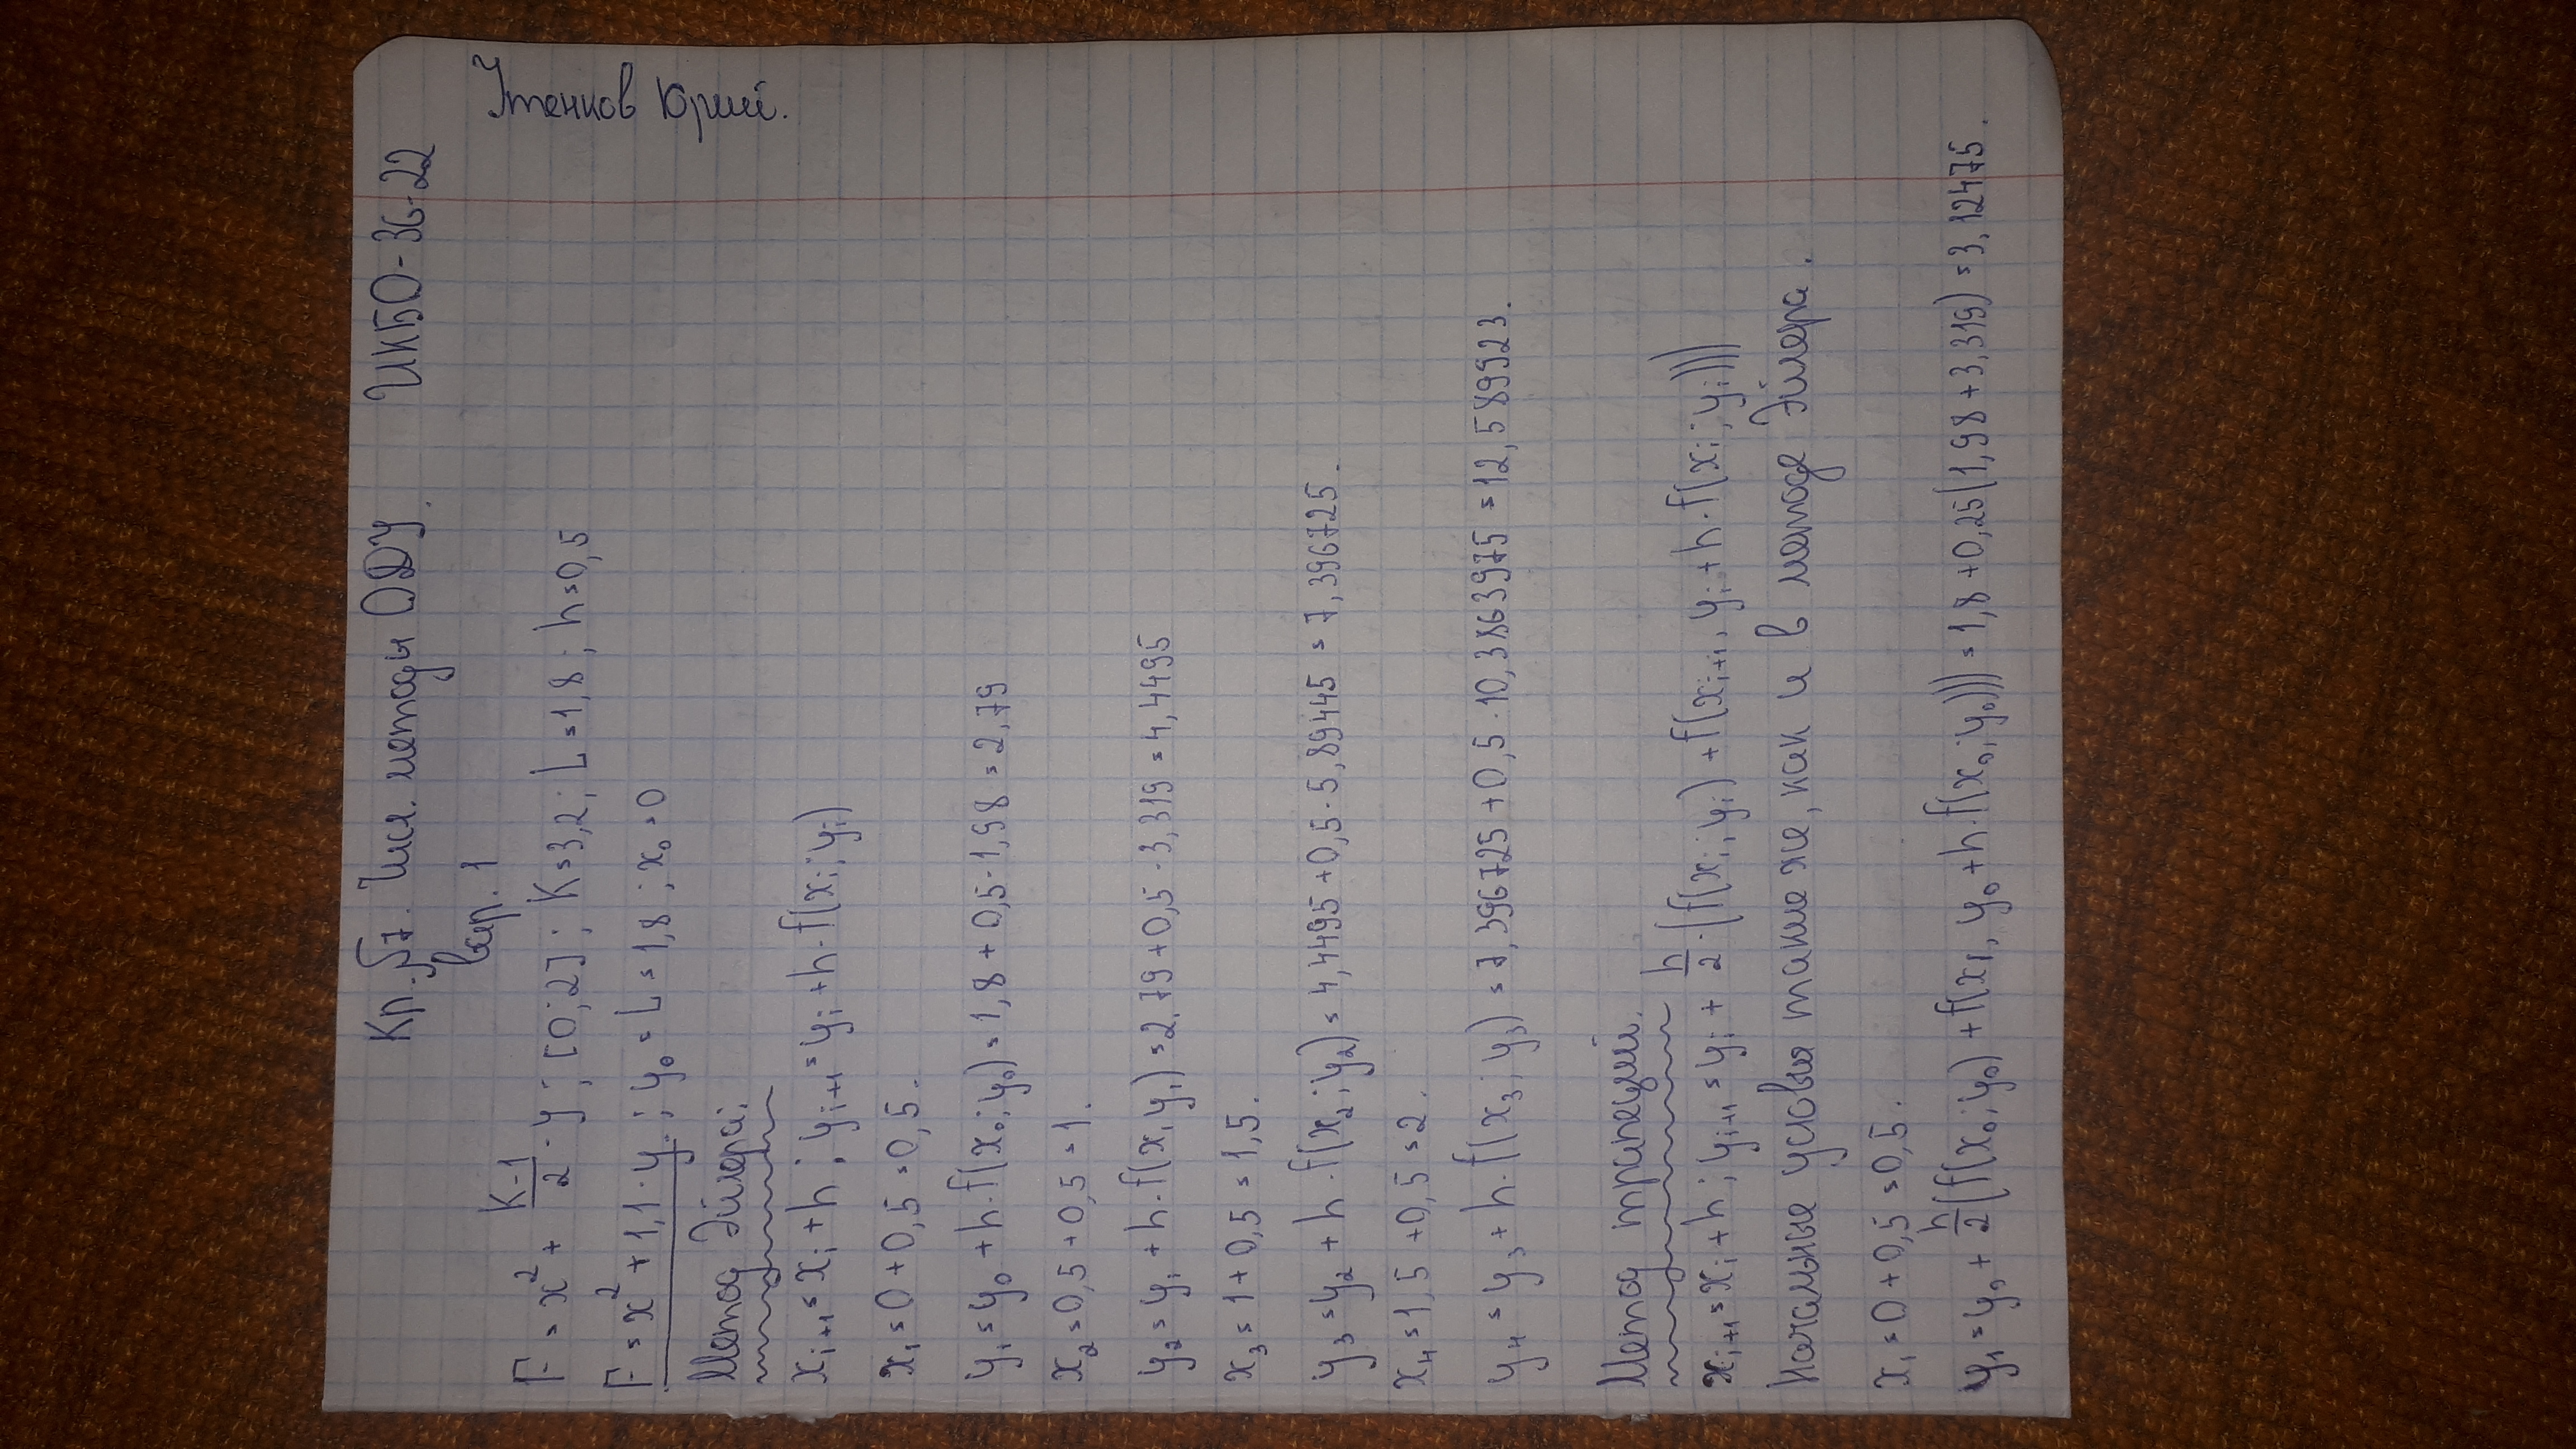 Кр. §7. Числ. методы ОДУ. ИКБО-36-22
вар. 1
Утенков Юрий.
F = x² + (K-1)/2 · y ; [0; 2] ; K = 3,2 ; L = 1,8 ; h = 0,5
F = x² + 1,1 · y ; y₀ = L = 1,8 ; x₀ = 0
Метод Эйлера:
xᵢ₊₁ = xᵢ + h ; yᵢ₊₁ = yᵢ + h · f(xᵢ; yᵢ)
x₁ = 0 + 0,5 = 0,5.
y₁ = y₀ + h · f(x₀; y₀) = 1,8 + 0,5 · 1,98 = 2,79
x₂ = 0,5 + 0,5 = 1.
y₂ = y₁ + h · f(x₁ y₁) = 2,79 + 0,5 · 3,319 = 4,4495
x₃ = 1 + 0,5 = 1,5.
y₃ = y₂ + h · f(x₂; y₂) = 4,4495 + 0,5 · 5,89445 = 7,396725.
x₄ = 1,5 + 0,5 = 2.
y₄ = y₃ + h · f(x₃; y₃) = 7,396725 + 0,5 · 10,3863975 = 12,589923.
Метод трапеций.
xᵢ₊₁ = xᵢ + h ; yᵢ₊₁ = yᵢ + h/2 · (f(xᵢ; yᵢ) + f(xᵢ₊₁, yᵢ + h · f(xᵢ; yᵢ)))
Начальные условия такие же, как и в методе Эйлера.
x₁ = 0 + 0,5 = 0,5.
y₁ = y₀ + h/2 (f(x₀; y₀) + f(x₁, y₀ + h · f(x₀; y₀))) = 1,8 + 0,25(1,98 + 3,319) = 3,12475.